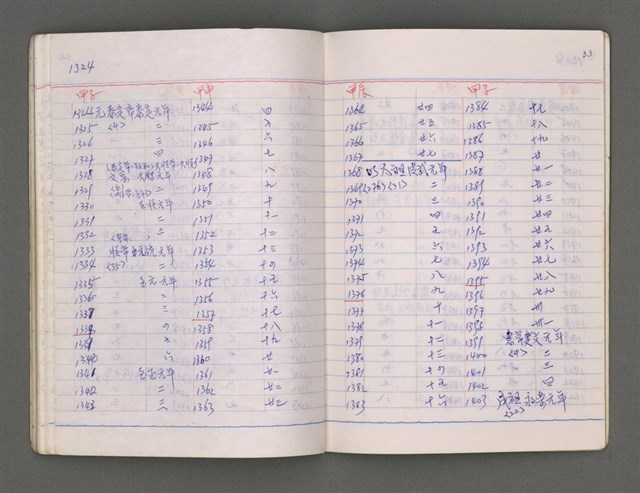 1324
甲子 甲申
1324 元泰定帝泰定元年 1344 四
1325 <4> 二 1345 五
1326 三 1346 六
1327 四 1347 七
1328 文宗 天曆元年 1348 八
1329 二 1349 九
1330 至順元年 1350 十
1331 二 1351 十一
1332 三 1352 十二
1333 順帝 元統元年 1353 十三
1334 <35> 二 1354 十四
1335 至元元年 1355 十五
1336 二 1356 十六
1337 三 1357 十七
1338 四 1358 十八
1339 五 1359 十九
1340 六 1360 廿
1341 至正元年 1361 廿一
1342 二 1362 廿二
1343 三 1363 廿三
33
甲辰 甲子
1364 廿四 1384 十七
1365 廿五 1385 十八
1366 廿六 1386 十九
1367 廿七 1387 廿
1368 明太祖洪武元年 1388 廿一
1369 <276> <31> 二 1389 廿二
1370 三 1390 廿三
1371 四 1391 廿四
1372 五 1392 廿五
1373 六 1393 廿六
1374 七 1394 廿七
1375 八 1395 廿八
1376 九 1396 廿九
1377 十 1397 卅
1378 十一 1398 卅一
1379 十二 1399 惠帝建文元年
1380 十三 1400 <4> 二
1381 十四 1401 三
1382 十五 1402 四
1383 十六 1403 成祖 永樂元年
<22>